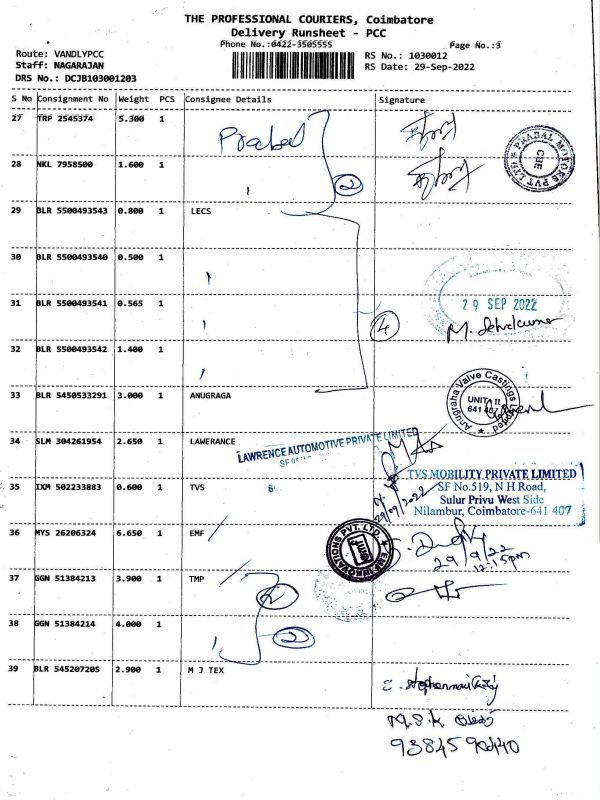 THE PROFESSIONAL COURIERS, Coimbatore
Delivery Runsheet - PCC
Phone No.:0422-3505555
Page No.:3
Route: VANDLYPCC
Staff: NAGARAJAN
DRS No.: DCJB103001203
RS No.: 1030012
RS Date: 29-Sep-2022
S No Consignment No Weight PCS Consignee Details Signature
27 TRP 2545374 5.300 1
Prabal
PRABAL MOTORS PVT LTD
CBE
28 NKL 7958500 1.600 1
2
29 BLR 5500493543 0.800 1 LECS
30 BLR 5500493540 0.500 1
31 BLR 5500493541 0.565 1
29 SEP 2022
4
32 BLR 5500493542 1.400 1
33 BLR 5450533291 3.000 1 ANUGRAGA
Anugraha Valve Castings Limited
UNIT II
641 407
34 SLM 304261954 2.650 1 LAWERANCE
LAWRENCE AUTOMOTIVE PRIVATE LIMITED
29/09/2022
35 IXM 502233883 0.600 1 TVS
TVS MOBILITY PRIVATE LIMITED
SF No.519, N H Road,
Sulur Privu West Side
Nilambur, Coimbatore-641 407
36 MYS 26206324 6.650 1 EMF
EMF INNOVATIONS PVT. LTD.
emf
29/9/22
12.15pm
37 GGN 51384213 3.900 1 TMP
38 GGN 51384214 4.000 1
2
39 BLR 545207205 2.900 1 M J TEX
M.S.K